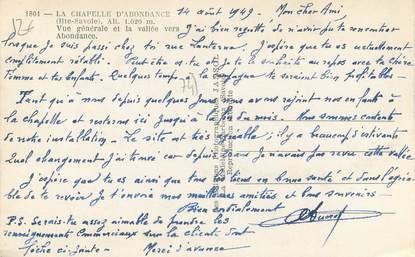 1801 - LA CHAPELLE D'ABONDANCE
(Hte-Savoie). Alt. 1.020 m.
Vue générale et la vallée vers
Abondance.
14 août 1949 - Mon cher Ami
J'ai bien regretté de n'avoir pu te rencontrer
lorsque je suis passé chez toi rue Lanterne. J'espère que tu es actuellement
complètement rétabli. Peut être es-tu et je te le souhaite au repos avec ta chère
Femme et tes Enfants. Quelques temps à la campagne te seraient bien profitables -
Tant qu'à nous depuis quelques jours nous avons rejoint nos enfants à
la chapelle et resterons ici jusqu'à la fin du mois. Nous sommes contents
de notre installation. Le site est très agréable; il y a beaucoup d'estivants
Quel changement j'ai trouvé car depuis 20 ans je n'avais pas revu cette vallée.
J'espère que tu es ainsi que tous les tiens en bonne santé et dans l'agréa-
ble de te revoir je t'envoie mes meilleures amitiés et bons souvenirs
Bien cordialement
P.S. Serais-tu assez aimable de prendre les
renseignements Commerciaux sur la cliente dont
fiche ci-jointe - Merci d'avance